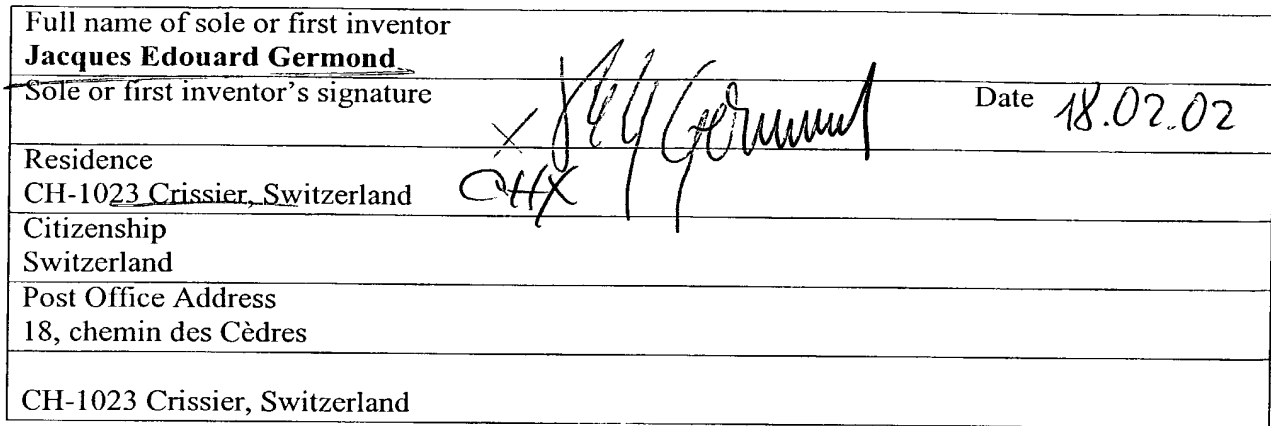 Full name of sole or first inventor
Jacques Edouard Germond
Sole or first inventor's signature
Date 18.02.02
Germond
Residence
CHX
CH-1023 Crissier, Switzerland
Citizenship
Switzerland
Post Office Address
18, chemin des Cèdres
CH-1023 Crissier, Switzerland